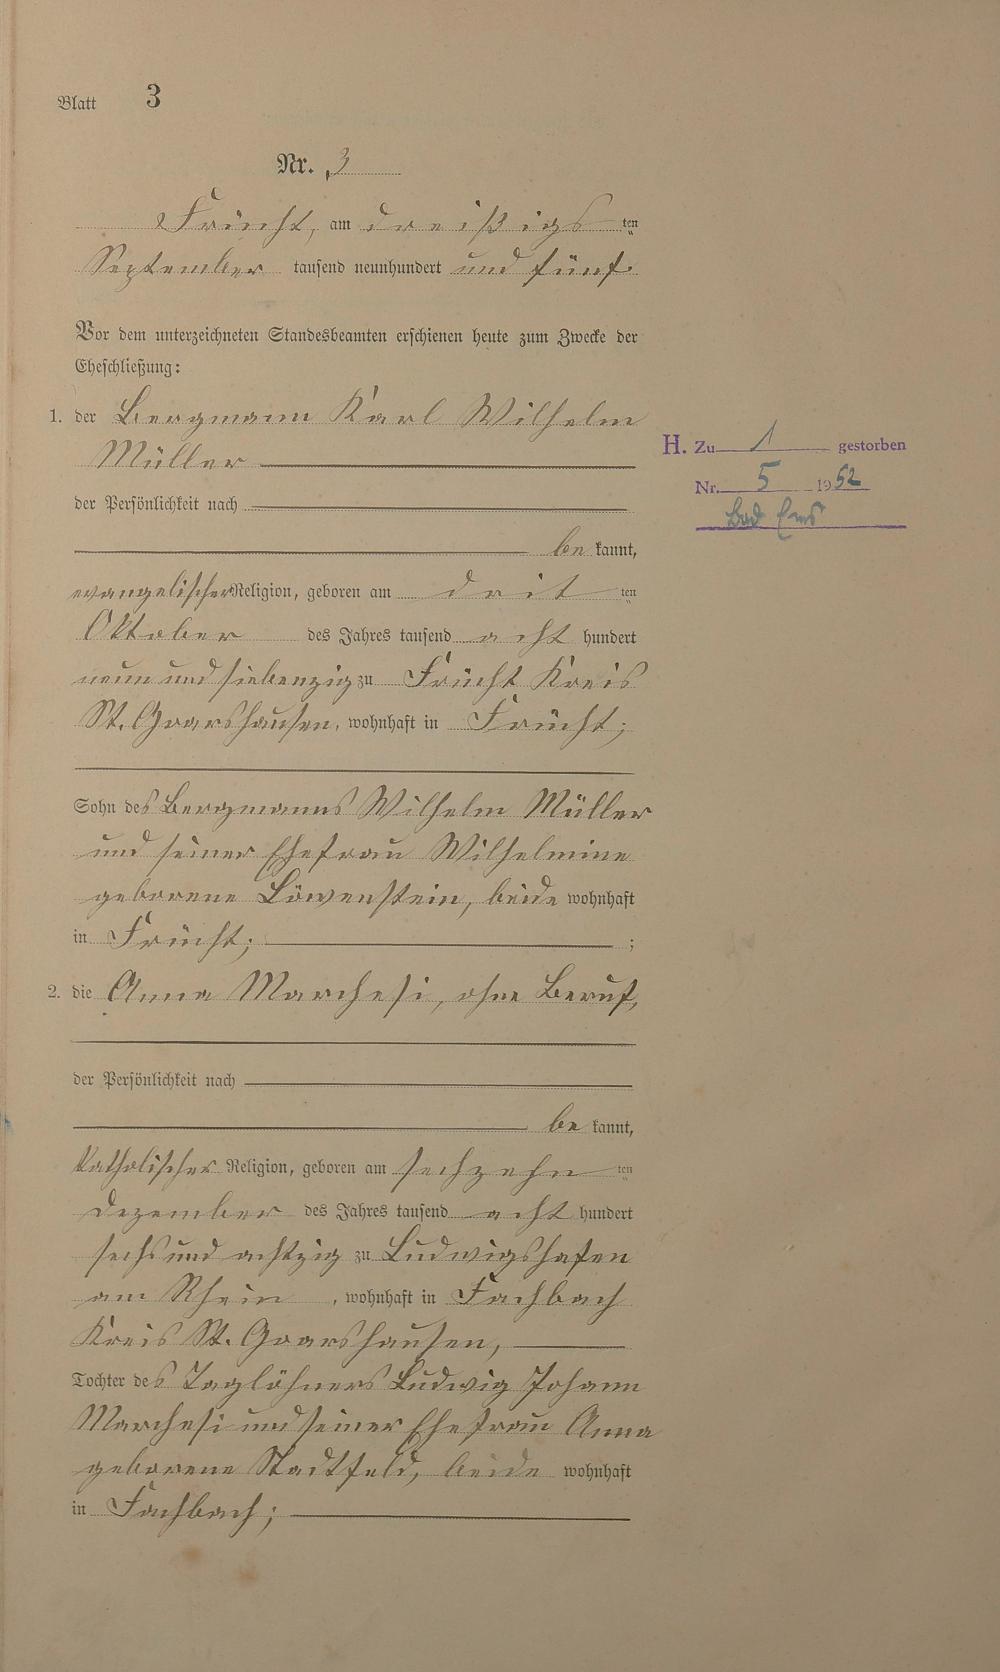 Blatt 3
Nr. 3
Frücht, am dreißigs ten
September tausend neunhundert und fünf.
Vor dem unterzeichneten Standesbeamten erschienen heute zum Zwecke der
Eheschließung:
1. der Bergmann Karl Wilhelm
Müller
der Persönlichkeit nach
be kannt,
evangelischer Religion, geboren am drit ten
Oktober des Jahres tausend acht hundert
neun und siebenzig zu Frücht Kreis
St. Goarshausen, wohnhaft in Frücht;
Sohn des Bergmanns Wilhelm Müller
und seiner Ehefrau Wilhelmine
geborene Löwenstein, beide wohnhaft
in Frücht; ;
2. die Anna Marchesi, ohne Beruf,
der Persönlichkeit nach
be kannt,
katholischer Religion, geboren am sechzehn ten
Dezember des Jahres tausend acht hundert
sechs und achtzig zu Ludwigshafen
am Rhein , wohnhaft in Fachbach
Kreis St. Goarshausen,
Tochter des Taglöhners Ludwig Johann
Marchesi und seiner Ehefrau Anna
geborene Stadtfeld, beide wohnhaft
in Fachbach;
H. Zu 1 gestorben
Nr. 5 1952
Bad Ems